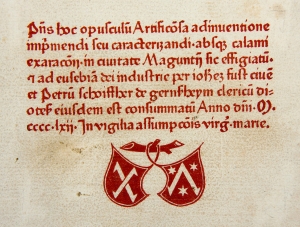 Pn̄s hoc opusculū Artificōsa adinuentione
impͥmendi seu caracterizandi absqꝫ calami
exaracōn· in ciuitate Magunt̄ij sic effigiatū·
ꝛ ad eusebiā dei industrie per ioh̄eꝫ fust ciuē
et Petrū schoiffher de gernsheym clericū di-
oteſ eiusdem est consummatū Anno dn̄i· M
cccc·lxij· In vigilia assumpcōis virḡ· marie·